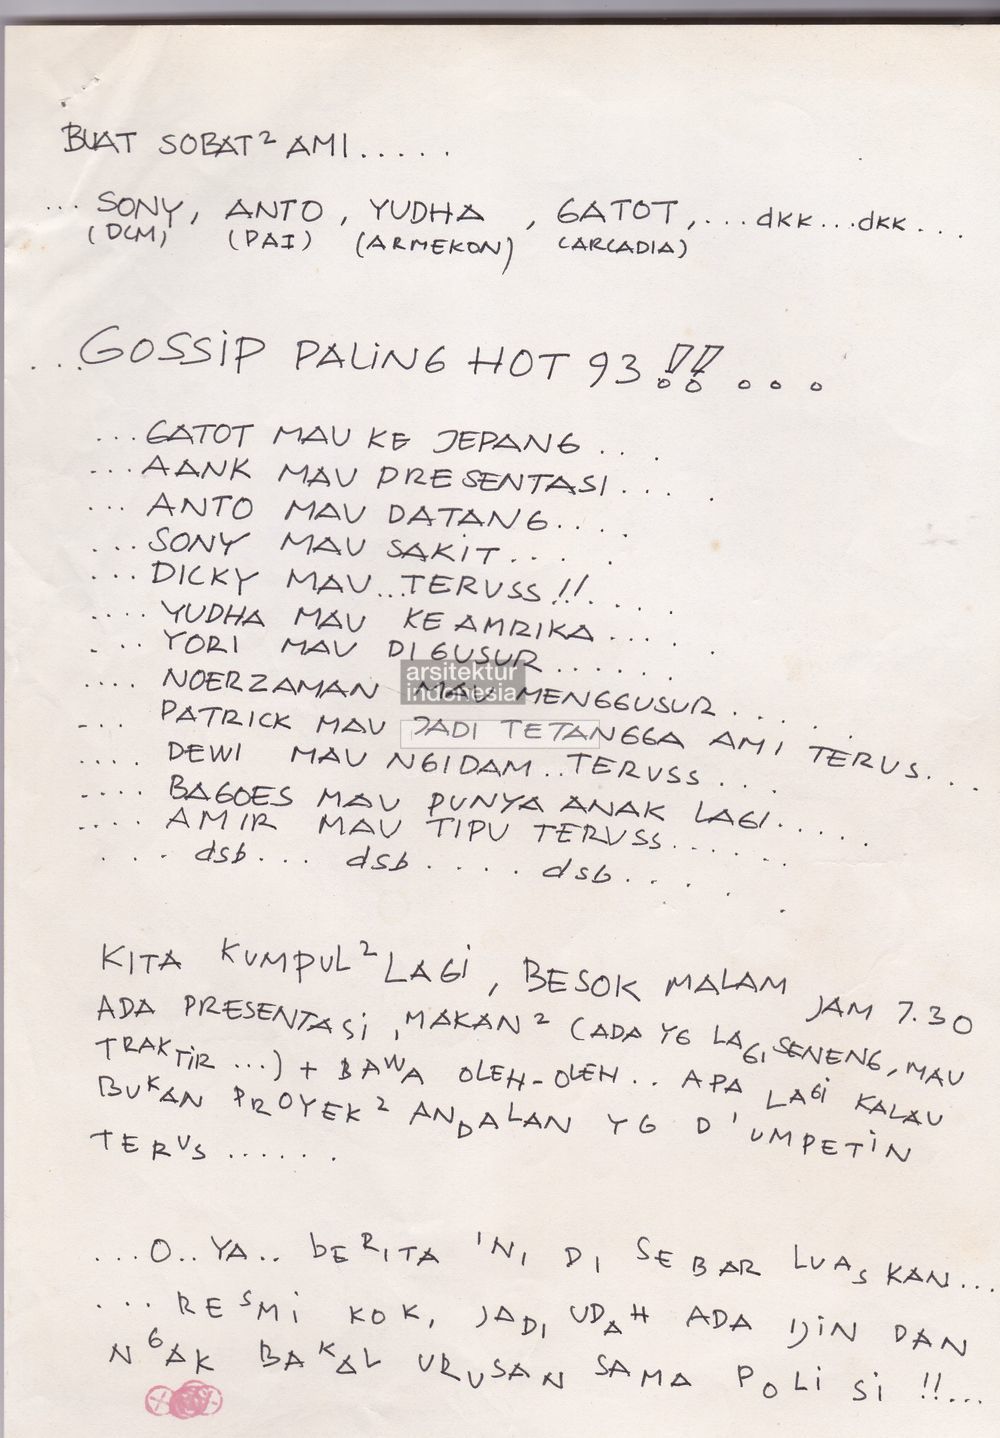 BUAT SOBAT² AMI.....
... SONY, ANTO, YUDHA, GATOT, ... dkk ... dkk ...
(DCM) (PAI) (ARMEKON) (ARCADIA)
... GOSSIP PALING HOT 93 !! ...
... GATOT MAU KE JEPANG ...
... AANK MAU PRESENTASI ....
... ANTO MAU DATANG ....
... SONY MAU SAKIT.....
... DICKY MAU...TERUSS!!.....
.... YUDHA MAU KE AMRIKA .....
.... YORI MAU DIGUSUR .......
.... NOERZAMAN MAU MENGGUSUR .....
.... PATRICK MAU JADI TETANGGA AMI TERUS....
.... DEWI MAU NGIDAM..TERUSS ....
.... BAGOES MAU PUNYA ANAK LAGI.....
.... AMIR MAU TIPU TERUSS.......
... dsb ... dsb .... dsb .....
arsitektur
indonesia
KITA KUMPUL² LAGI, BESOK MALAM JAM 7.30
ADA PRESENTASI, MAKAN² (ADA YG LAGI SENENG, MAU
TRAKTIR ...) + BAWA OLEH-OLEH.. APA LAGI KALAU
BUKAN PROYEK² ANDALAN YG D'UMPETIN
TERUS .......
...O..YA.. BERITA INI DI SEBAR LUASKAN...
... RESMI KOK, JADI UDAH ADA IJIN DAN
NGAK BAKAL URUSAN SAMA POLISI !!...